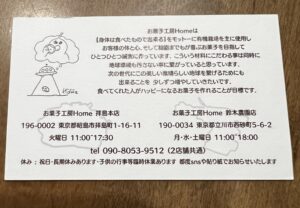 お菓子工房Homeは
【身体は食べたもので出来る】をモットーに有機栽培を主に使用し
お客様の体と心、そして知識までもが喜ぶお菓子を目指して
ひとつひとつ誠実に作っています。こういう材料にこだわる事は同時に
地球環境も汚さない事に繋がっていると思っています。
次の世代にこの美しい素晴らしい地球を繋げるためにも
出来ることを 少しずつ増やしていきたいです。
食べてくれた人がハッピーになるお菓子を作れることが目標です。
お菓子工房Home 拝島本店
196-0002 東京都昭島市拝島町1-16-11
火曜日 11:00~17:30
お菓子工房Home 鈴木農園店
190-0034 東京都立川市西砂町5-6-2
月・水・土曜日 11:00~18:00
tel 090-8053-9512 (2店舗共通)
休み : 祝日・長期休みあります・子供の行事等臨時休業あります 都度snsや貼り紙でお知らせいたします